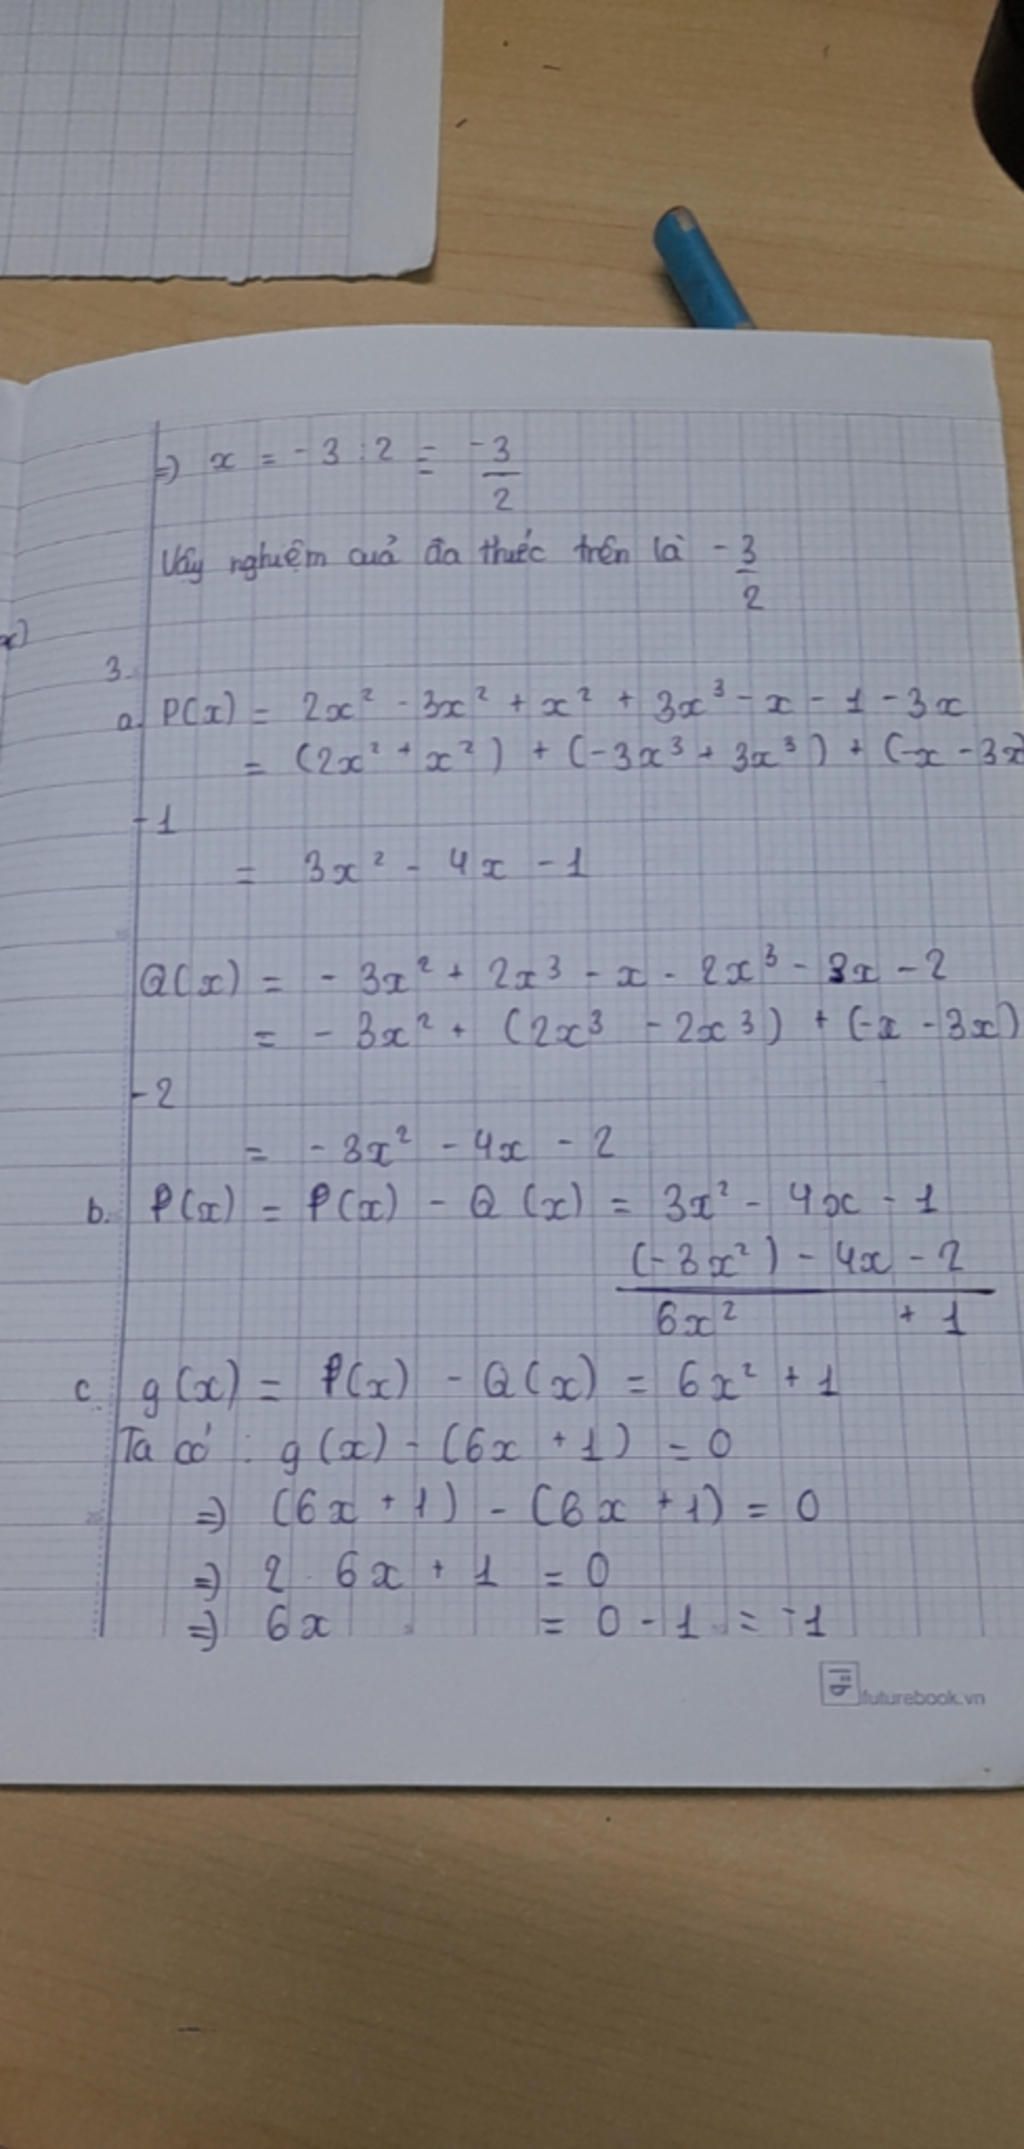 => x = -3 : 2 = -3/2
Vậy nghiệm cuả đa thức trên là -3/2
x)
3.
a. P(x) = 2x² - 3x² + x² + 3x³ - x - 1 - 3x
= (2x² + x²) + (-3x³ + 3x³) + (-x - 3x)
-1
= 3x² - 4x - 1
Q(x) = - 3x² + 2x³ - x - 2x³ - 3x - 2
= - 3x² + (2x³ - 2x³) + (-x - 3x)
-2
= - 3x² - 4x - 2
b. P(x) = P(x) - Q(x) = 3x² - 4x - 1
(-3x²) - 4x - 2
6x² + 1
c. g(x) = P(x) - Q(x) = 6x² + 1
Ta có : g(x) - (6x + 1) = 0
=> (6x + 1) - (6x + 1) = 0
=> 2 . 6x + 1 = 0
=> 6x = 0 - 1 = -1
futurebook.vn